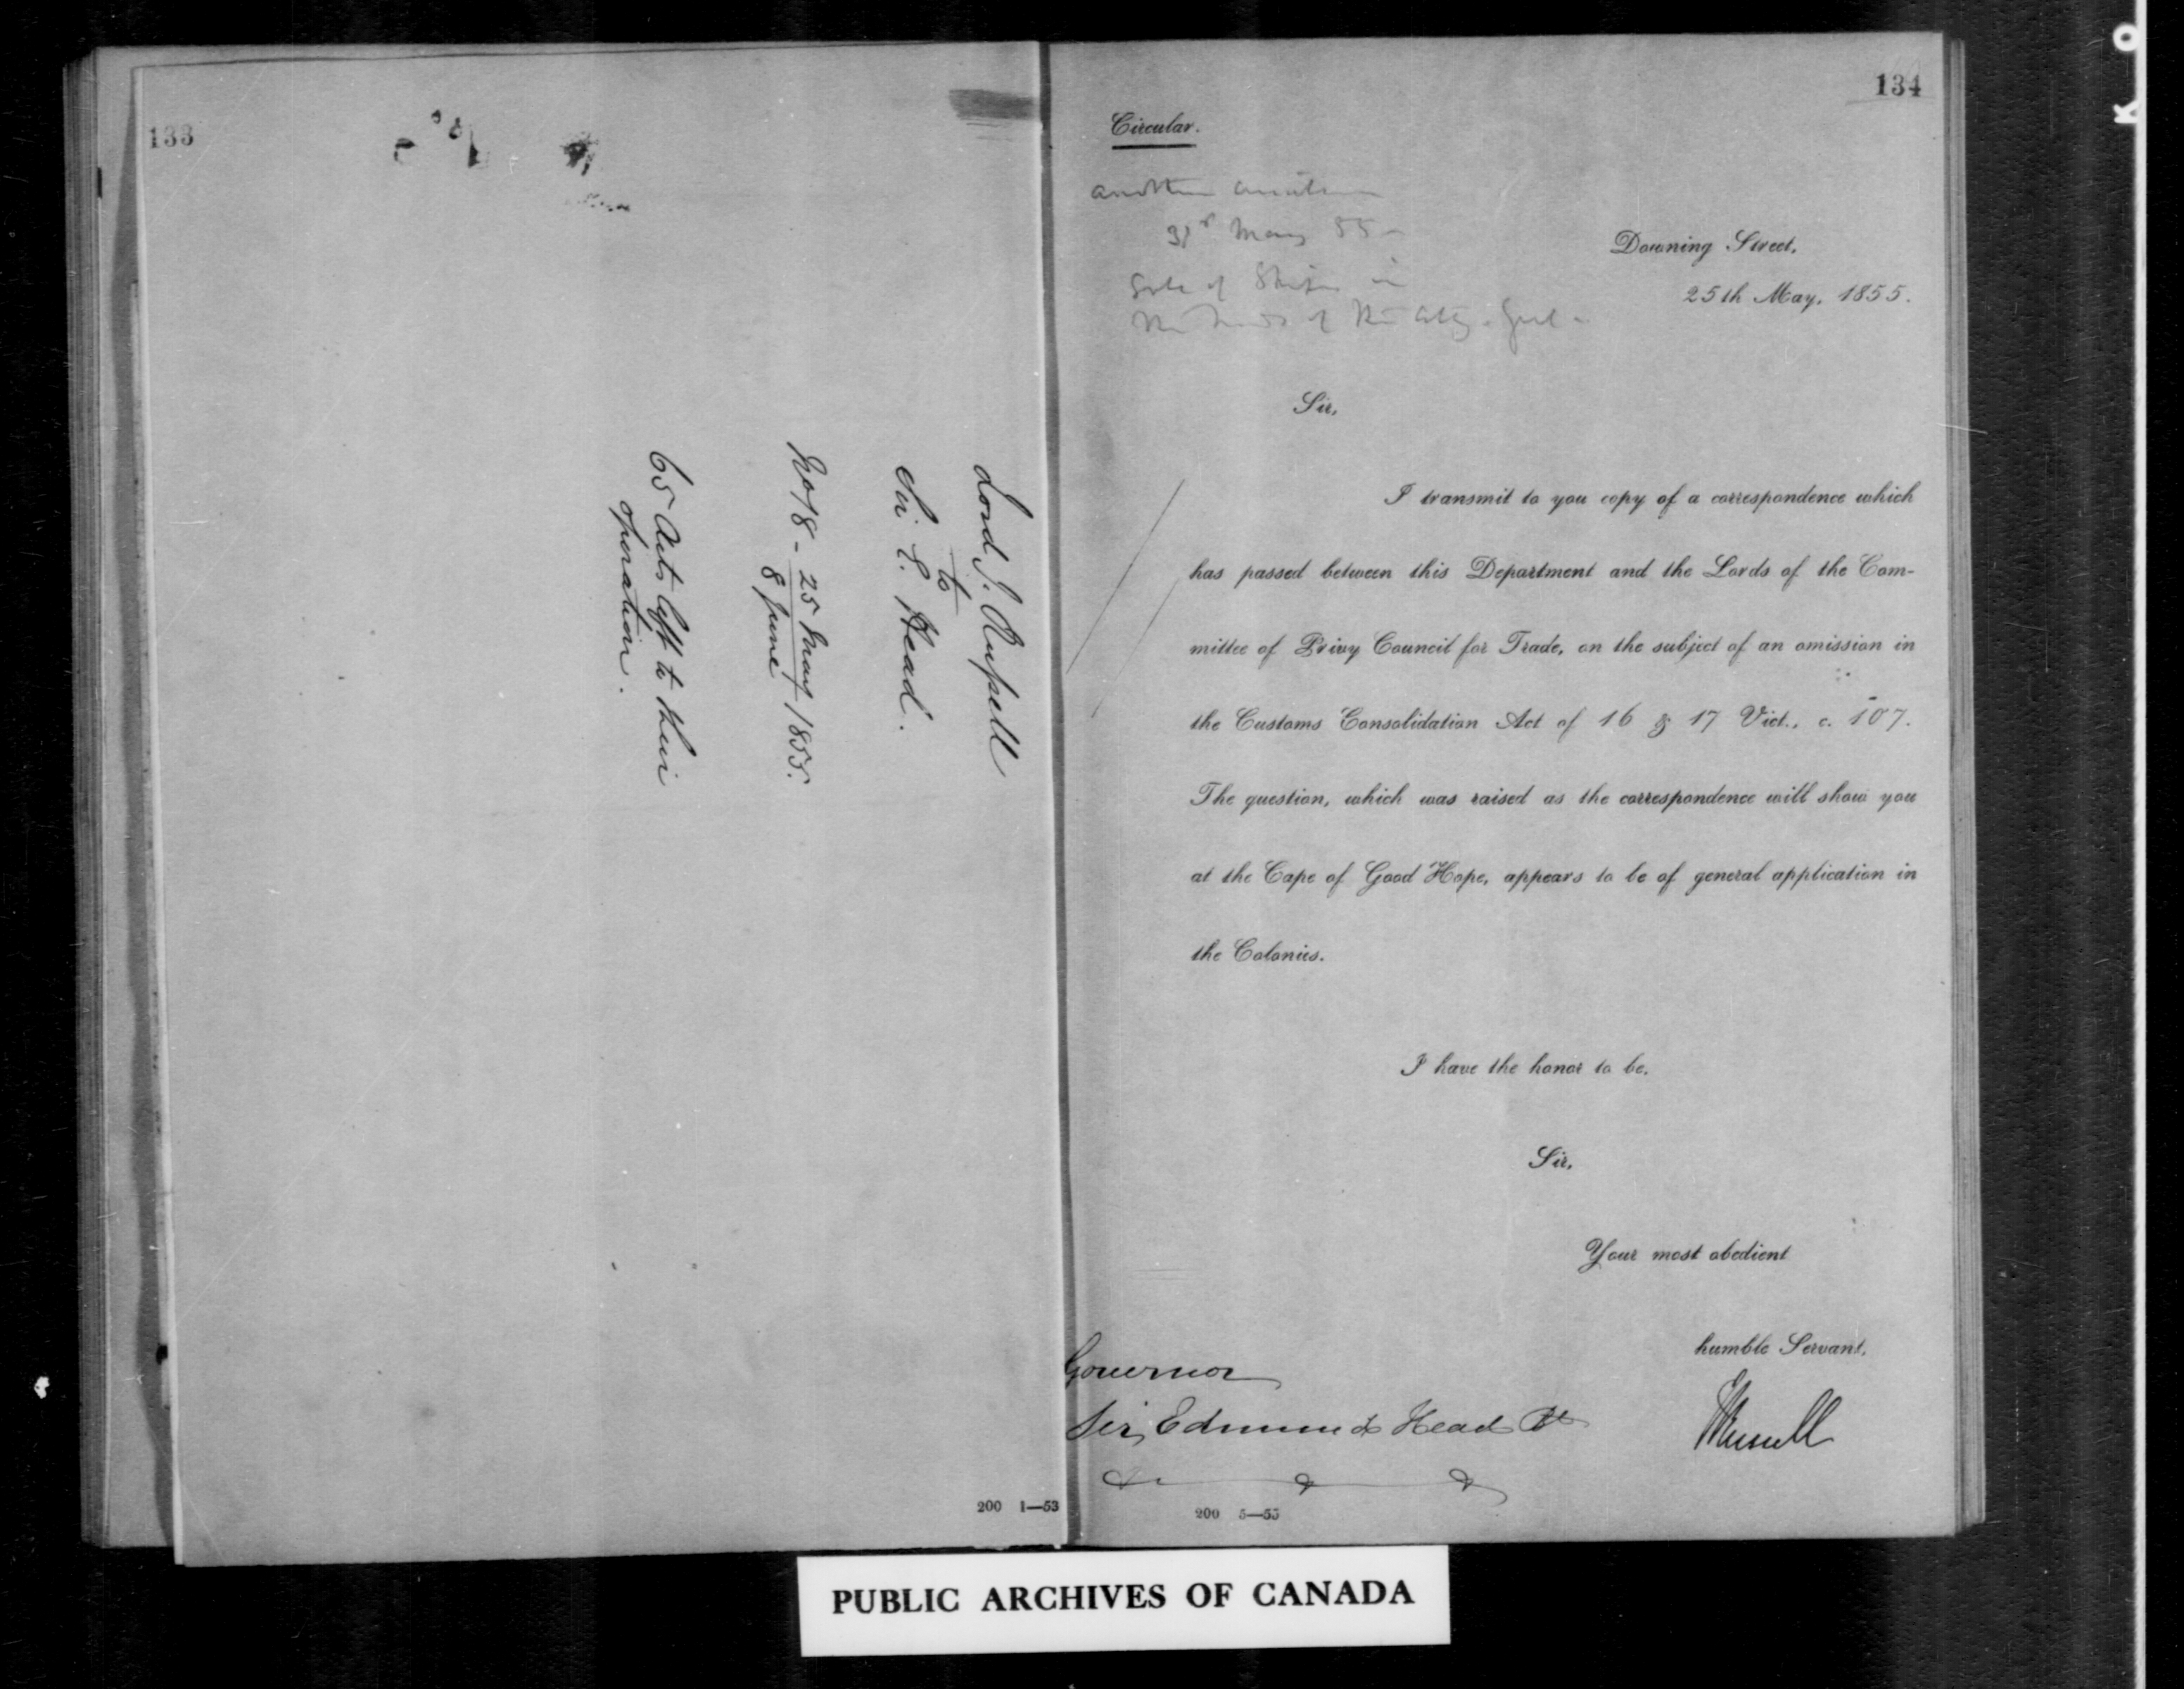 133
Lord J. Russell
to
Sir E. Head.
No 18 - 25 May / 1855.
8 June
65 Acts left to their
operation.
200 1—53
134
Circular.
another
31st May 55 -
Sale of Ships in
the hands of the Atty. Genl -
Downing Street,
25th May, 1855.
Sir,
I transmit to you copy of a correspondence which
has passed between this Department and the Lords of the Com-
mittee of Privy Council for Trade, on the subject of an omission in
the Customs Consolidation Act of 16 & 17 Vict., c. 107.
The question, which was raised as the correspondence will show you
at the Cape of Good Hope, appears to be of general application in
the Colonies.
I have the honor to be,
Sir,
Your most obedient
humble Servant,
JRussell
Governor
Sir, Edmund Head Bt
200 5—55
PUBLIC ARCHIVES OF CANADA